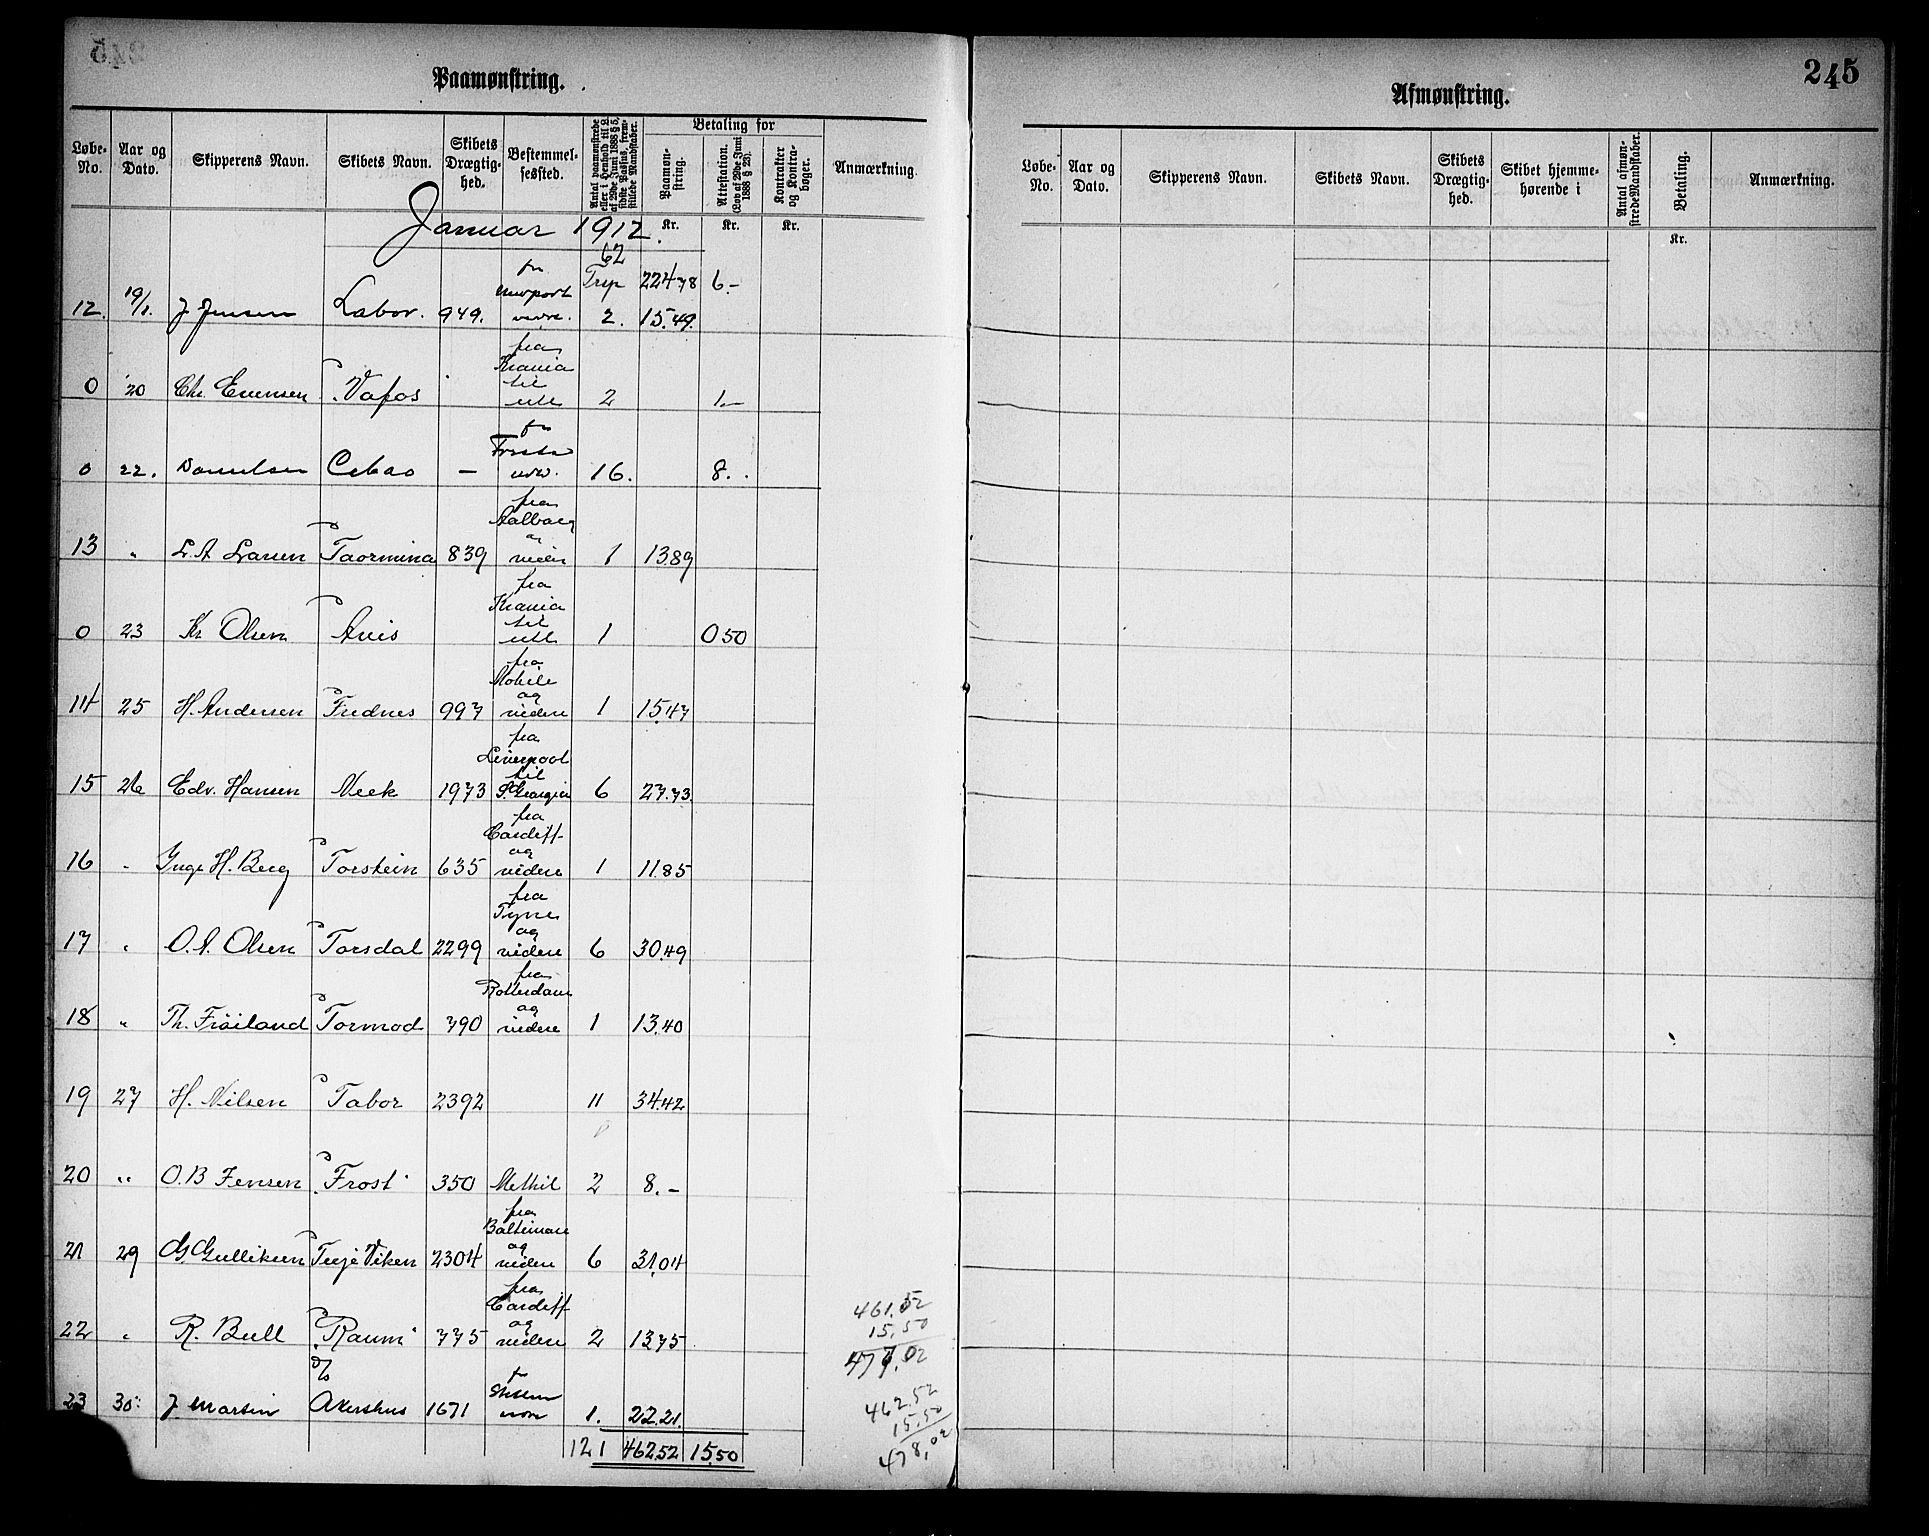 Paamønstring.
Løbe-No. Aar og Dato. Skipperens Navn. Skibets Navn. Skibets Drægtighed. Bestemmelsessted. Antal paamønstrede eller i Henhold til L. af 29de Juni 1888 § 5, sidste Passus, fremstillede Mandskaber. Betaling for Paamønstring. Attestation. (Lov af 29de Juni 1888 § 23). Kontrakter og Kontrabøger. Anmærkning.
Januar 1912.
Kr. Kr. Kr.
62
Trsp 22478 6.-
12. 19/1. J Jensen Labor. 949. fra Newport vidre. 2. 15.49.
0 20 Chr. Evensen Vafos fra Krania til utl 2 1.-
0 22. Danielsen Cebao — 16. 8.
13 " L. A Larsen Taormina 839 fra Aalborg og videre 1 13.89
0 23 Kr Olsen Avis fra Krania til utl 1 0 50
14 25 H. Andersen Frednes 997 fra Mobile og videre 1 15.47
15 26 Edv. Hansen Neck 1973 fra Liverpool til S. Georgia 6 27.73
16 " Inge H. Berg Torstein 635 fra Cardiff og videre 1 11.85
17 " O. A. Olsen Torsdal 2299 fra Tyne og videre 6 30.49
18 " Th. Frøiland Tormod 790 fra Rotterdam og videre 1 13.40
19 27 H. Nilsen Tabor 2392 11 34.42
20 " O. B Jensen Frost 350 Methil 2 8.-
21 29 G. Gulliksen Terje Viken 2304 fra Baltimore og videre 6 31.04
22 " R. Bull Raum 775 fra Cardiff og videre 2 13.75
23 30 J. Martin D/S Akershus 1671 1. 22.21.
121 462.52 15.50
461.52
15.50
477.02
462.52
15.50
478,02
Afmønstring.
245
Løbe-No. Aar og Dato. Skipperens Navn. Skibets Navn. Skibets Drægtighed. Skibet hjemmehørende i Antal afmønstrede Mandskaber. Betaling. Anmærkning.
Kr.